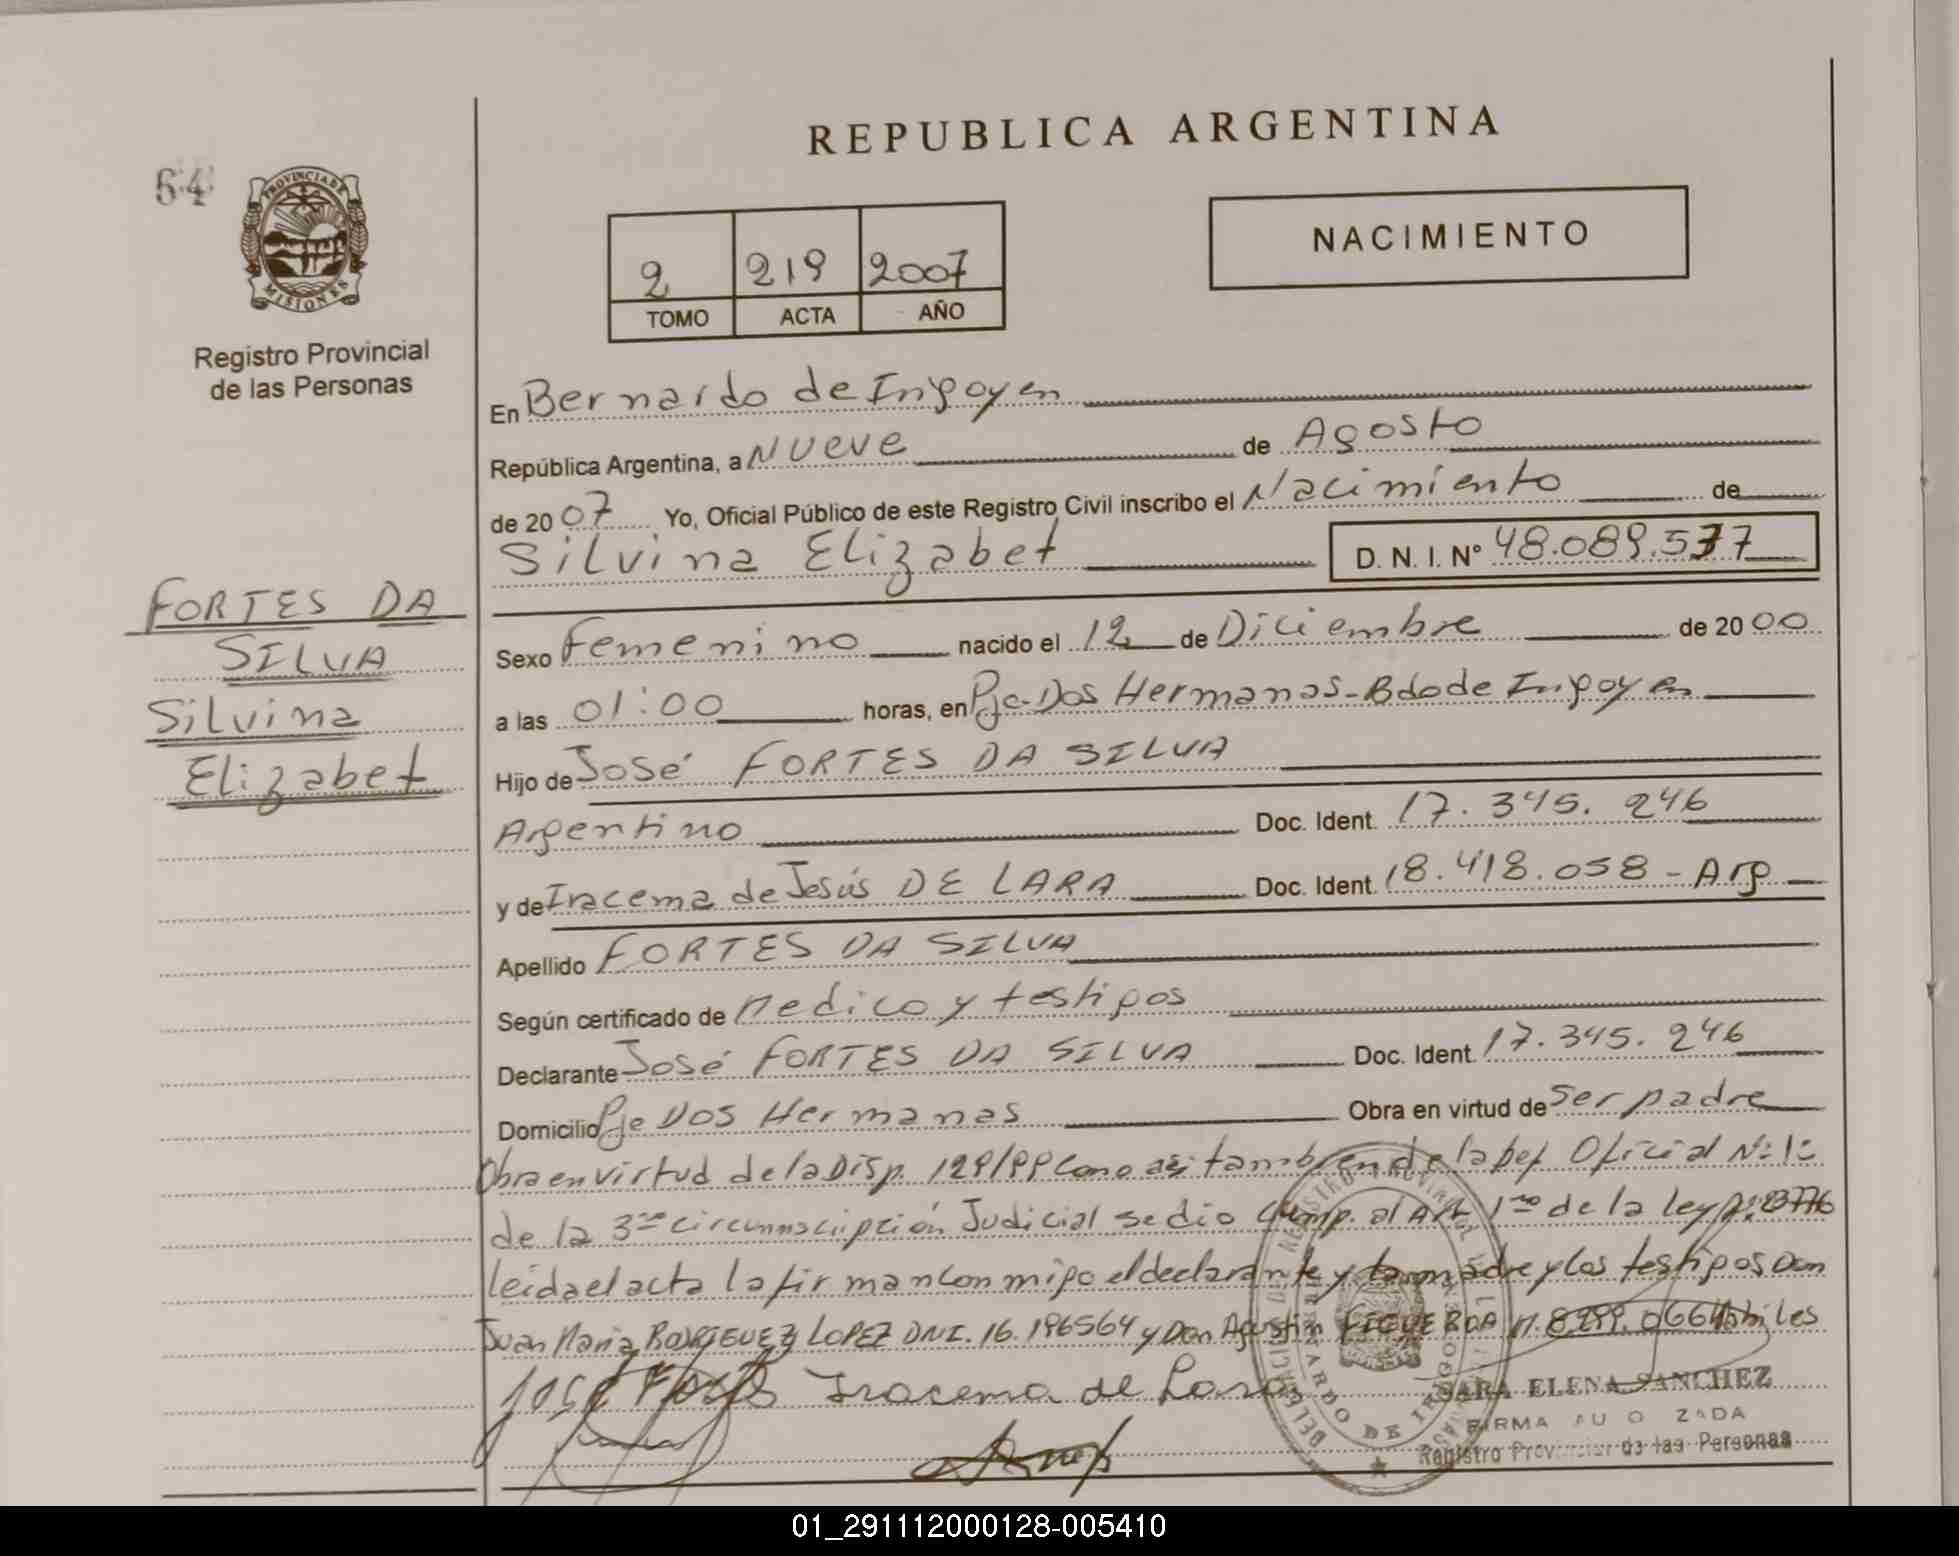 REPUBLICA ARGENTINA
54
PROVINCIA DE
MISIONES
Registro Provincial
de las Personas
2 219 2007
TOMO ACTA AÑO
NACIMIENTO
En Bernardo de Irigoyen
República Argentina, a Nueve de Agosto
de 2007 Yo, Oficial Público de este Registro Civil inscribo el Nacimiento de
Silvina Elizabet D. N. I. Nº 48.089.577
FORTES DA
SILVA
Silvina
Elizabet
Sexo Femenino nacido el 12 de Diciembre de 2000
a las 01:00 horas, en Pje-Dos Hermanas-Bdo de Irigoyen
Hijo de José FORTES DA SILVA
Argentino Doc. Ident. 17.345.246
y de Iracema de Jesús DE LARA Doc. Ident. 18.418.058 - Arg
Apellido FORTES DA SILVA
Según certificado de Medico y testigos
Declarante José FORTES DA SILVA Doc. Ident. 17.345.246
Domicilio Pje Dos Hermanas Obra en virtud de Ser padre
Obra en virtud de la Disp. 129/99 Como asi tambien de la Def Oficial Nº 1º
de la 3ra circunnscripción Judicial se dio Cump. al Art 1ro de la ley
leida el acta la firman con migo el declarante y la madre y los testigos Don
Juan Maria RODRIGUEZ LOPEZ DNI. 16.196564 y Don Agustin FIGUEROA M. 8.299.066 Habiles
José Iracema de Lara
SARA ELENA SANCHEZ
FIRMA AU O ZADA
Registro Provincial de las Personas
01_291112000128-005410